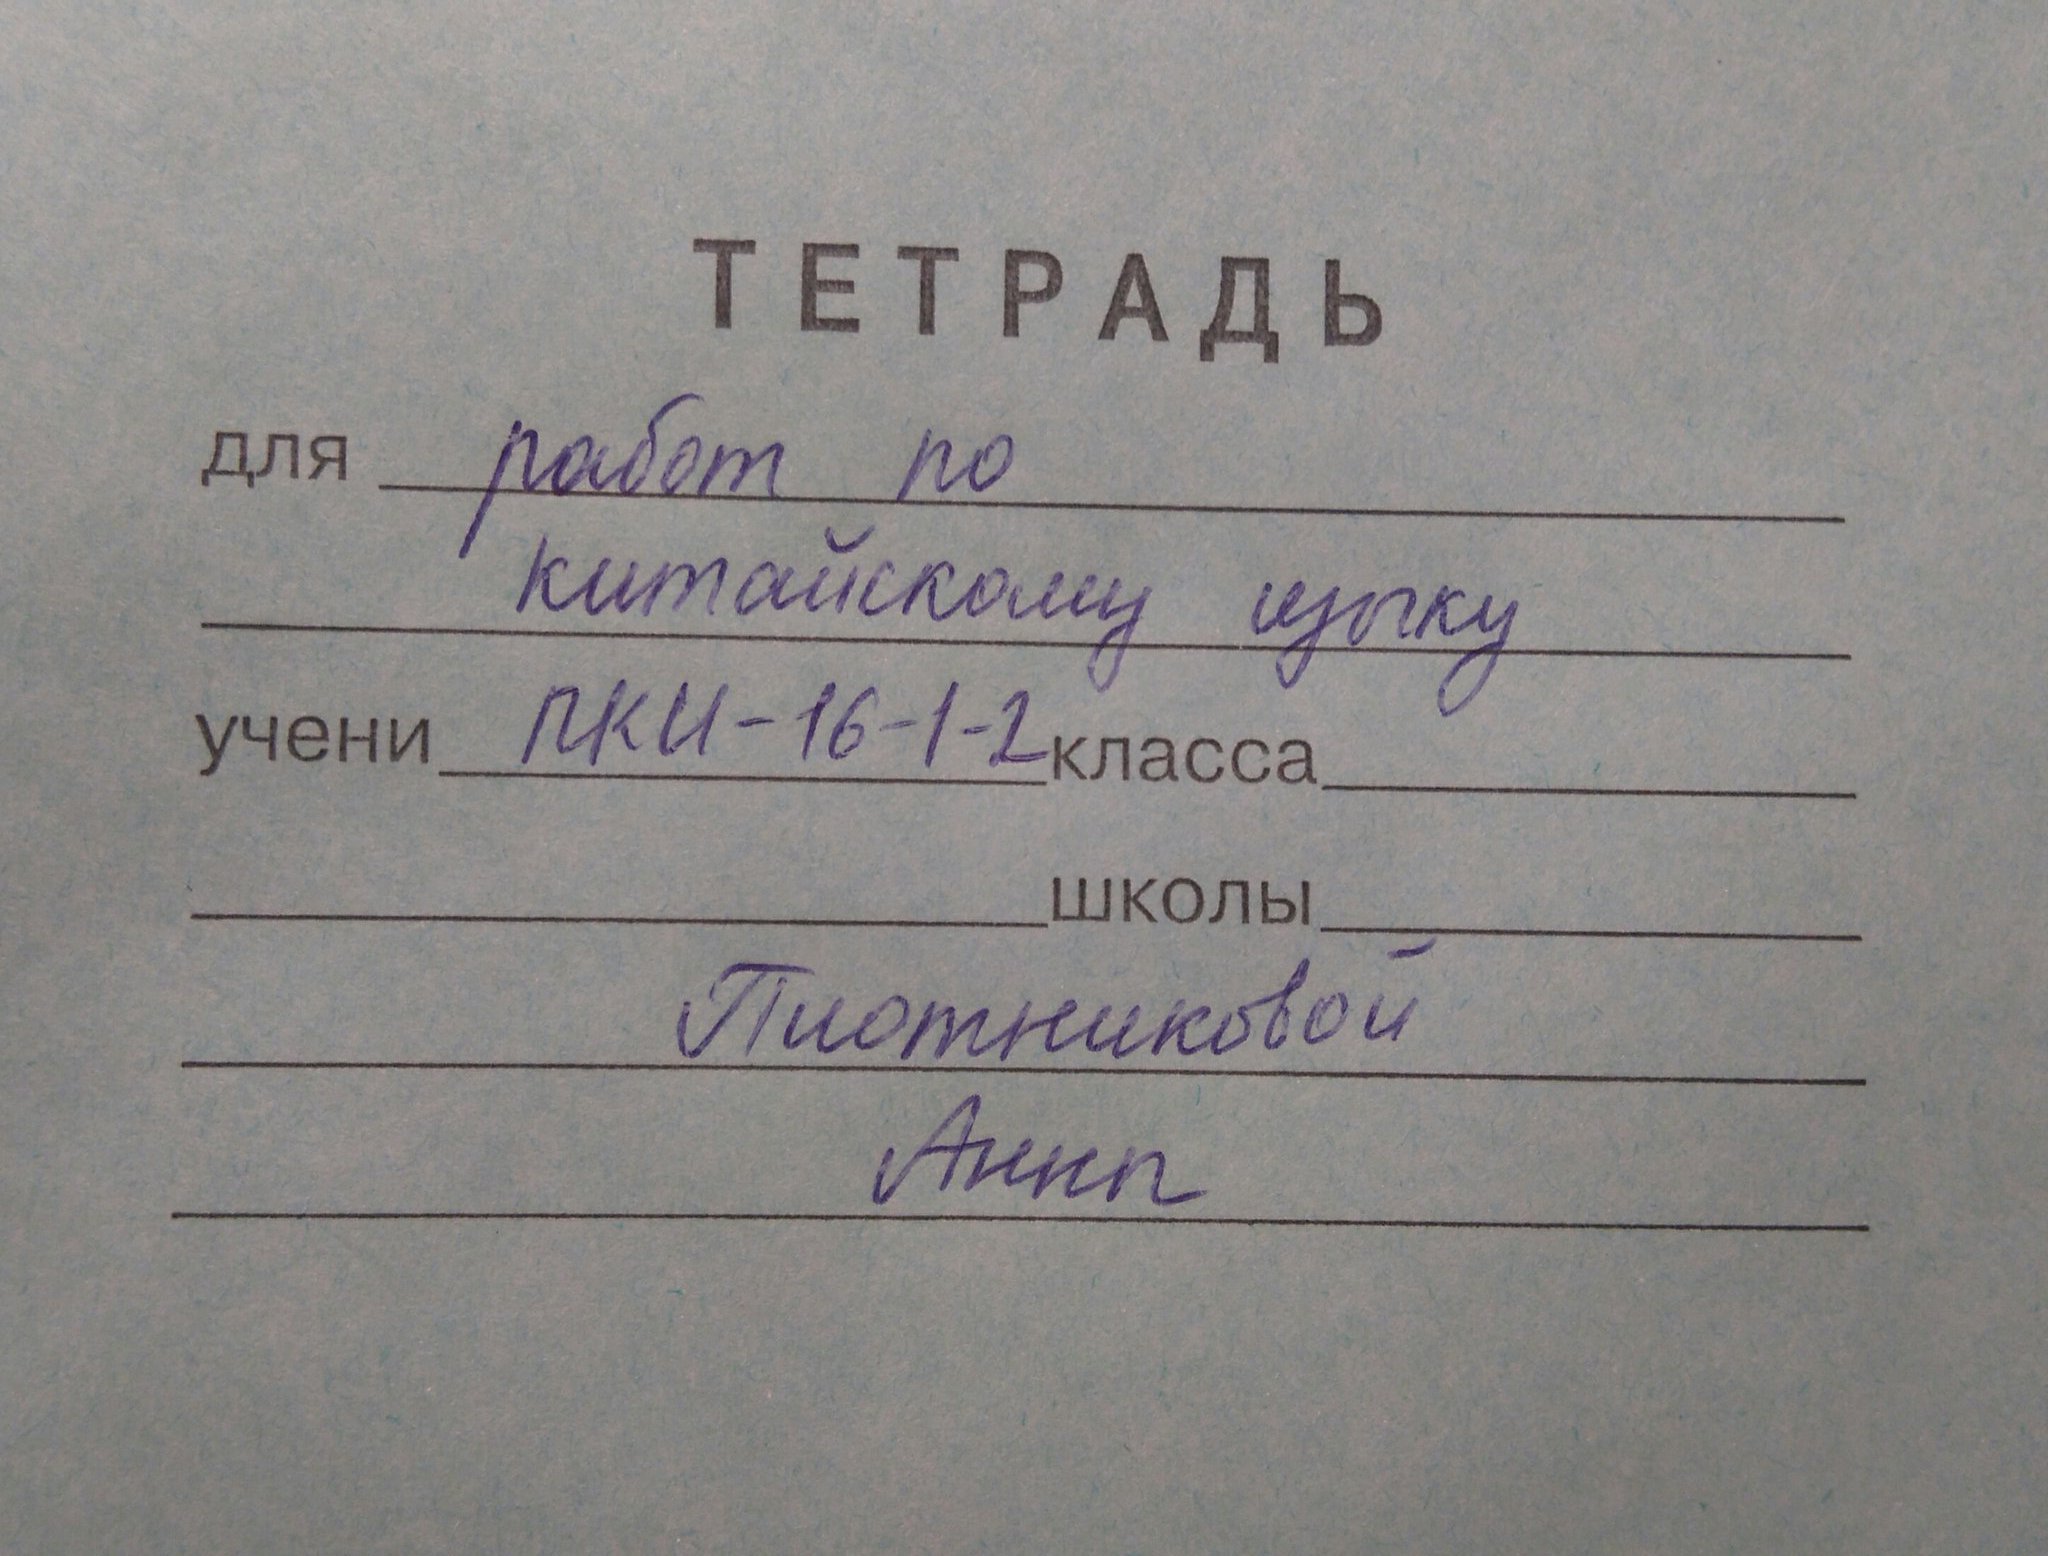 ТЕТРАДЬ
для работ по
китайскому языку
учени ПКИ-16-1-2 класса
школы
Плотниковой
Анны